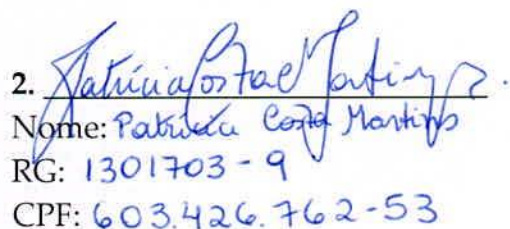 2. Patrícia Costa Martins.
Nome: Patrícia Costa Martins
RG: 1301703-9
CPF: 603.426.762-53